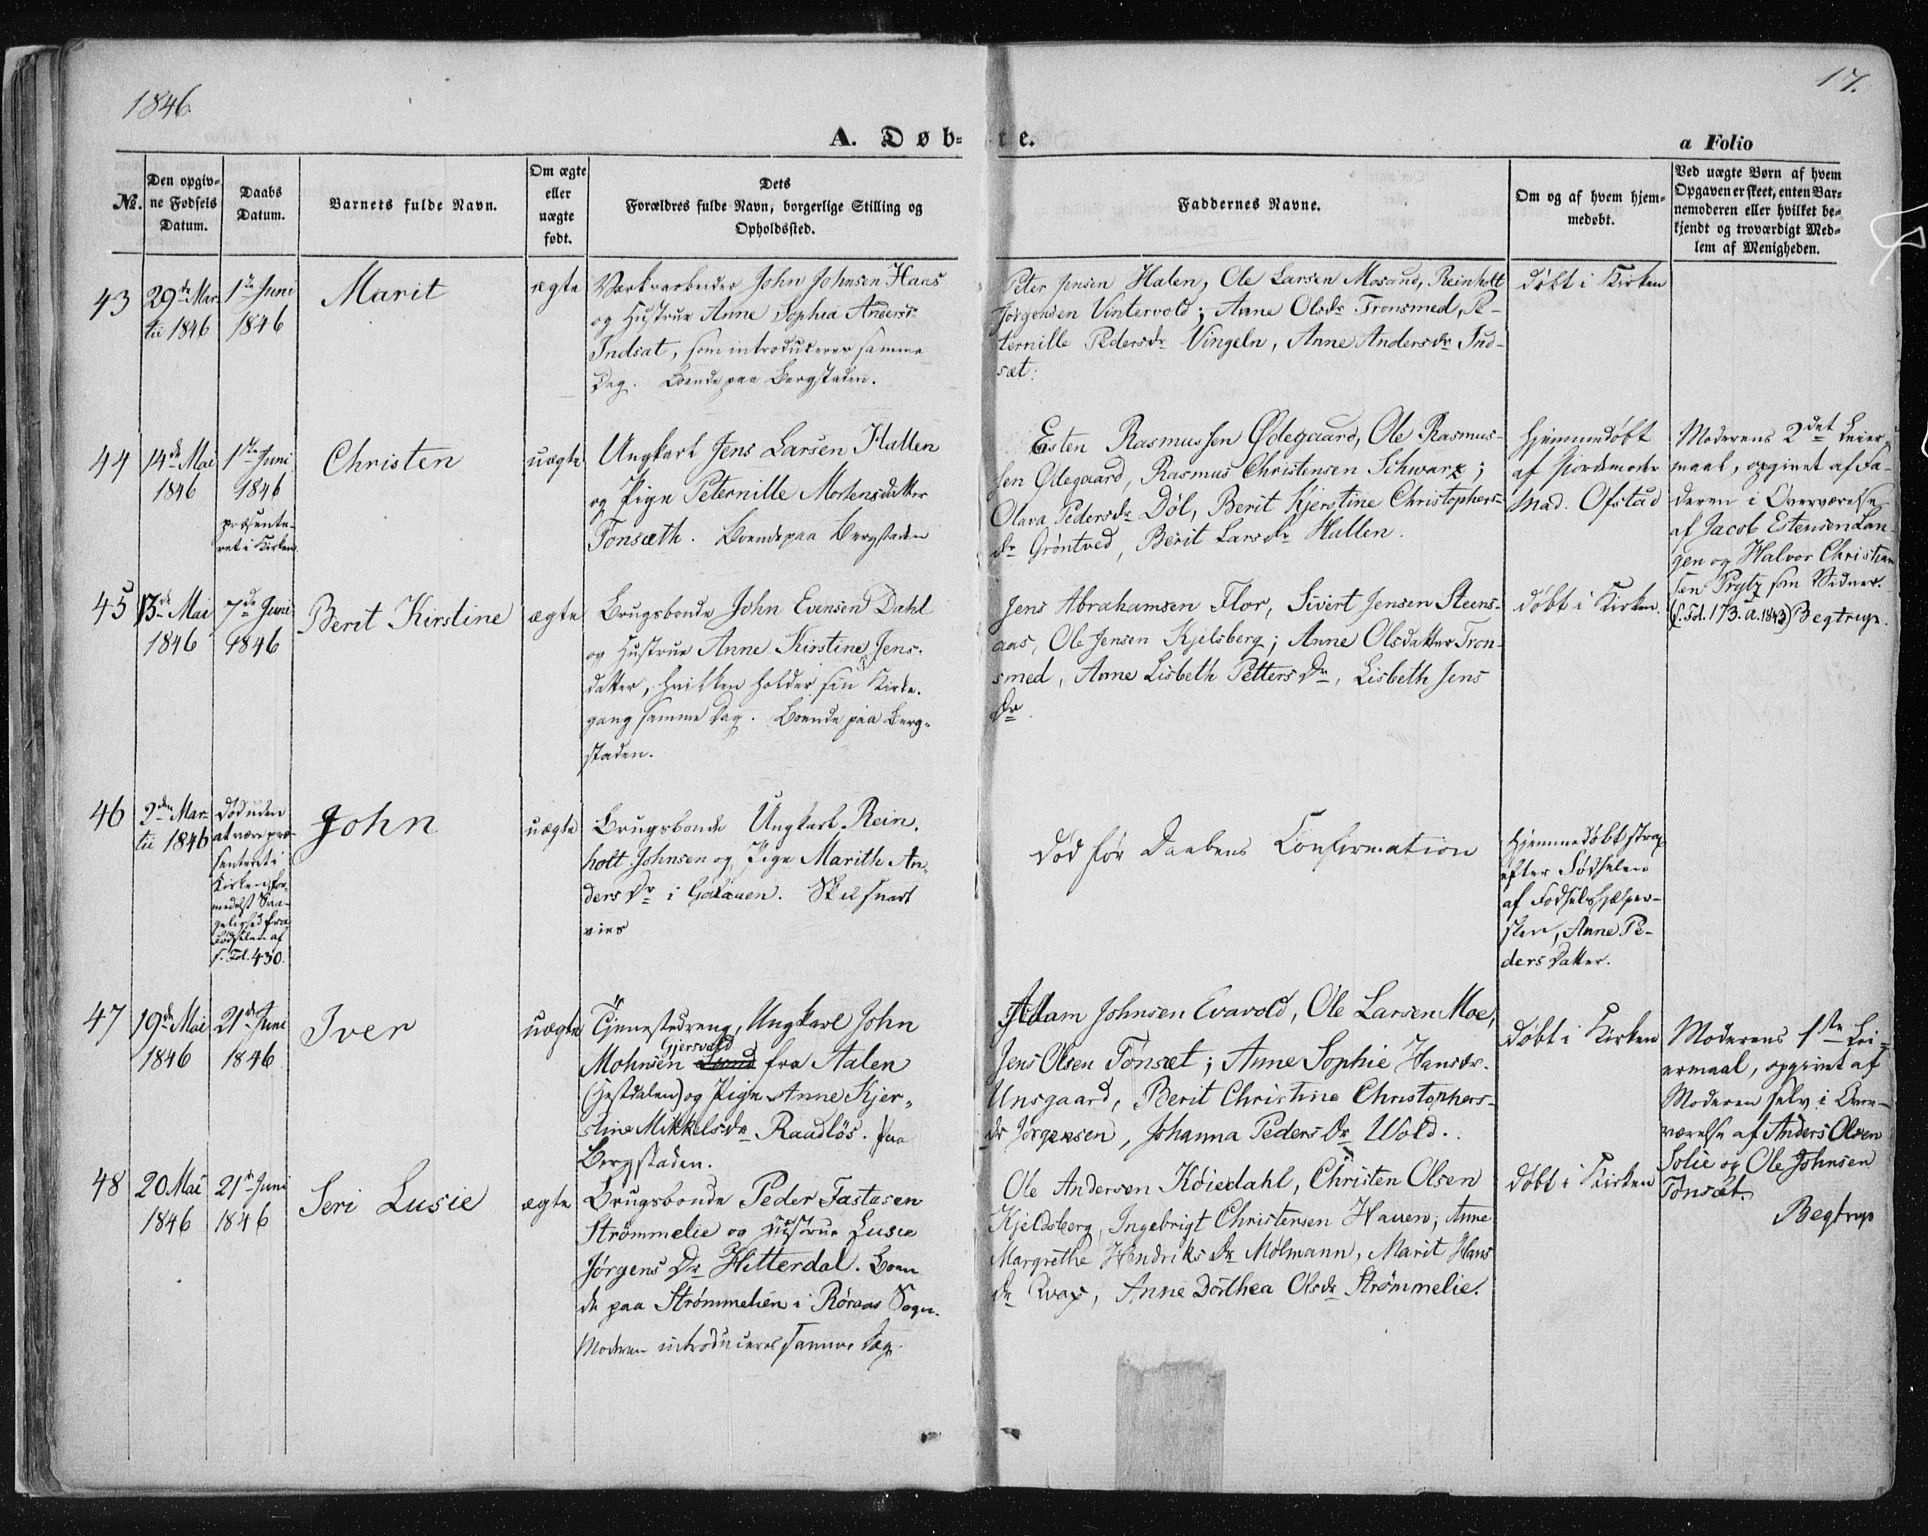 1846
17.
A. Døb-
te.
a Folio
No.
Den opgiv-
ne Fødsels
Datum.
Daabs
Datum.
Barnets fulde Navn.
Om ægte
eller
uægte
født.
Dets
Forældres fulde Navn, borgerlige Stilling og
Opholdssted.
Faddernes Navne.
Om og af hvem hjem-
medøbt.
Ved uægte Børn af hvem
Opgaven er skeet, enten Bar-
nemoderen eller hvilket be-
kjendt og troværdigt Med-
lem af Menigheden.
43
29de Mar-
tii 1846
1ste Juni
1846
Marit
ægte
Værksarbeider John Johnsen Haas
og Hustrue Anne Sophia Andersdr
Indsat, som introduceres samme
Dag. Boende paa Bergstaden.
Peter Jensen Halen, Ole Larsen Mosand, Reinholt
Jørgensen Vintervold; Anne Olsdr Tronsmed, Pe-
ternille Pedersdr Vingeln, Anne Andersdr Ind-
sæt.
døbt i Kirken
44
14de Mai
1846
1ste Juni
1846
præsente-
ret i Kirken
Christen
uægte
Ungkarl Jens Larsen Hallen
og Pige Peternille Mortensdatter
Tonsæth. Boende paa Bergstaden
Esten Rasmussen Ødegaard, Ole Rasmus-
sen Ødegaard, Rasmus Christensen Schwarz;
Olava Pedersdr Döl, Berit Kjerstine Christophers-
dr Gröntved, Berit Larsdr Hallen.
Hjemmedøbt
af Jordemoder
Mad. Ofstad
Moderens 2det Leier-
maal, opgivet af Fa-
deren i Overværelse
af Jacob Estensen Lan-
gen og Halvor Christian
sen Prytz som Vidner.
(s. Fol. 173. a. 1843) Begtrup.
45
13de Mai
1846
7de Juni
1846
Berit Kirstine
ægte
Brugsbonde John Evensen Dahl
og Hustrue Anne Kirstine Jens-
datter, hvilken holder sin Kirke-
gang samme Dag. Boende paa Berg-
staden.
Jens Abrahamsen Flor, Sivert Jensen Steens-
aas, Ole Jensen Kjelsberg; Anne Olsdatter Tron-
smed, Anne Lisbeth PettersDr, Lisbeth Jens
Dr.
døbt i Kirken.
46
2den Mar-
tii 1846
Død uden
at være præ-
senteret i
Kirken for-
medelst Sva-
gelighed fra
Fødselen af
s. Fol. 430.
John
uægte
Brugsbonde Ungkarl Rein-
holt Johnsen og Pige Marith An-
dersDr i Galaaen. Skal snart
vies
Død før Daabens Confirmation
Hjemmedøbt strax
efter Fødselen
af Fødselshjælper-
sken, Anne Pe-
ders Datter.
47
19de Mai
1846
21de Juni
1846
Iver
uægte
Tjenestedreng, Ungkarl John
Gjersvold
Mohnsen fra Aalen
(Hestdalen) og Pige Anne Kjer-
stine Mikkelsdr Raadlös. Paa
Bergstaden.
Adam Johnsen Evavold, Ole Larsen Moe,
Jens Olsen Tonsæt; Anne Sophie Hansdr
Unsgaard, Berit Christine Christophers-
dr Jörgensen, Johanna PedersDr Wold.
døbt i Kirken
Moderens 1ste Lei-
ermaal, opgivet af
Moderen selv i Over-
værelse af Anders Olsen
Solie og Ole Johnsen
Tonsæt.
Begtrup
48
20 Mai
1846
21de Juni
1846
Seri Lusie
ægte
Brugsbonde Peder Fastasen
Strømmelie og Hustrue Lusie
JørgensDr Hitterdal. Boen-
de paa Strømmelien i Röraas Sogn.
Moderen introduceres samme Dag.
Ole Andersen Köiedahl, Christen Olsen
Kjeldsberg, Ingebrigt Christensen Hauen; Anne
Margrethe HendriksDr Mølmann, Marit Hans
dr Kvas, Anne Dorthea Olsdr Strömmelie.
døbt i Kirken